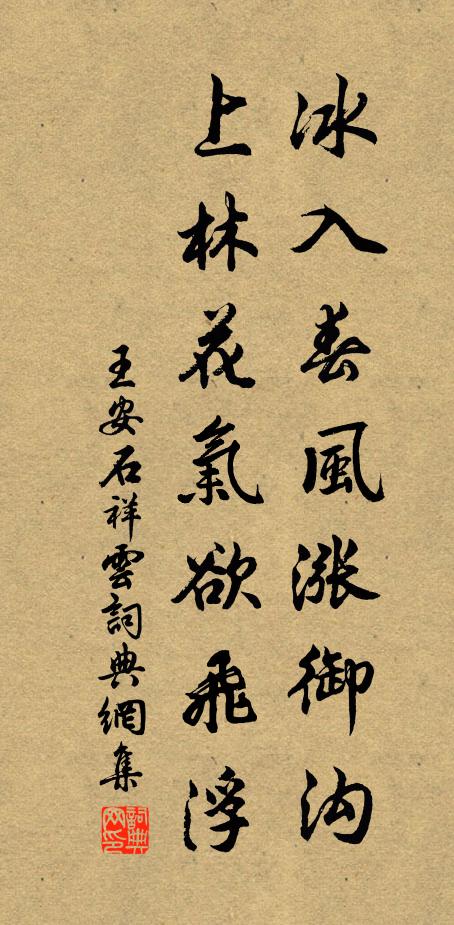 冰入春風漲御沟
上林花氣欲飛浮
王安石祥雲詞典網集
詞典网印